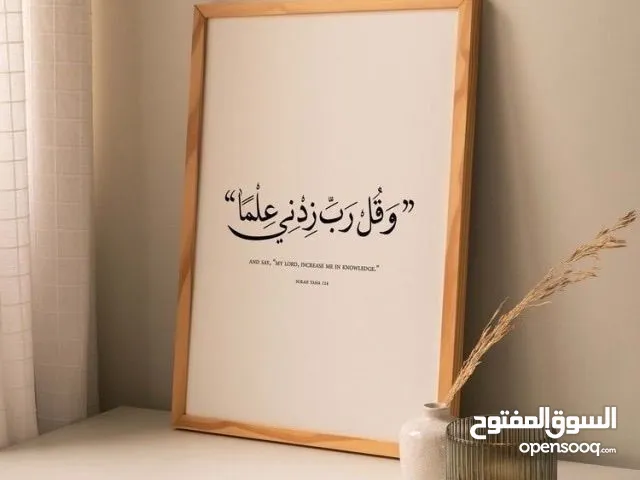 ”وَقُلْ رَبِّ زِدْنِي عِلْمًا“
AND SAY, “MY LORD, INCREASE ME IN KNOWLEDGE.”
SURAH TAHA 114
السوق المفتوح
opensooq.com